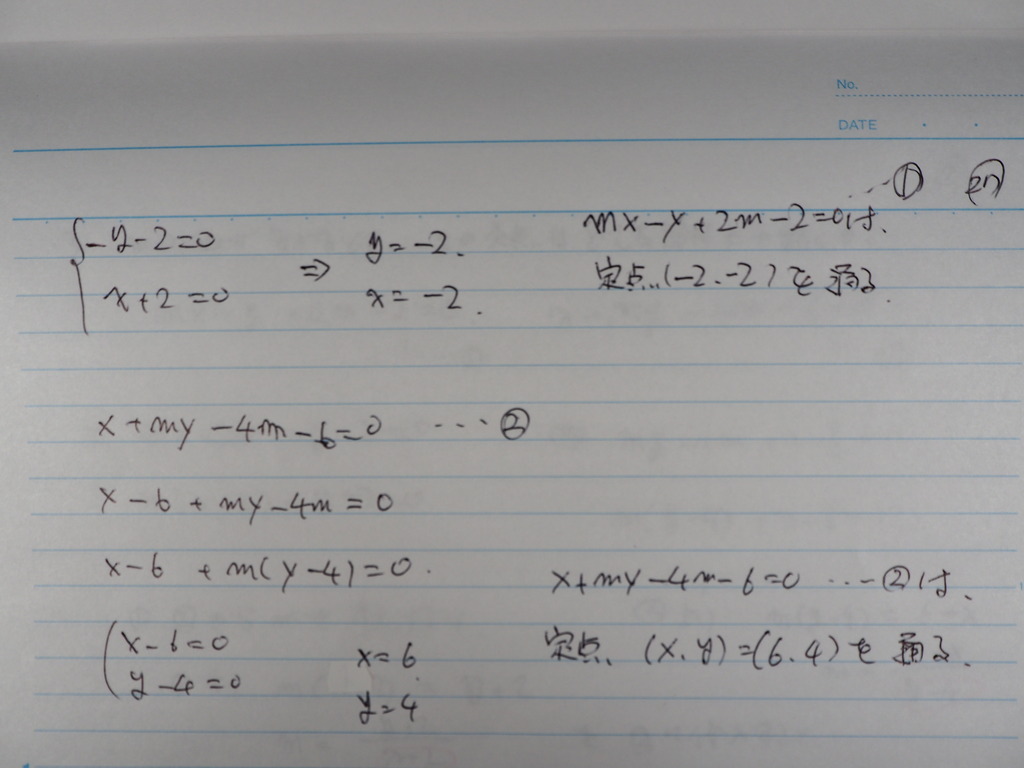 No.
DATE
-y-2=0 ⇒ y=-2.
x+2=0 x=-2.
…① より
mx-y+2m-2=0は、
定点(-2、-2)を通る
x+my-4m-6=0 …②
x-6+my-4m=0
x-6+m(y-4)=0.
x-6=0 x=6
y-4=0 y=4
x+my-4m-6=0 …②は、
定点、(x、y)=(6、4)を通る、